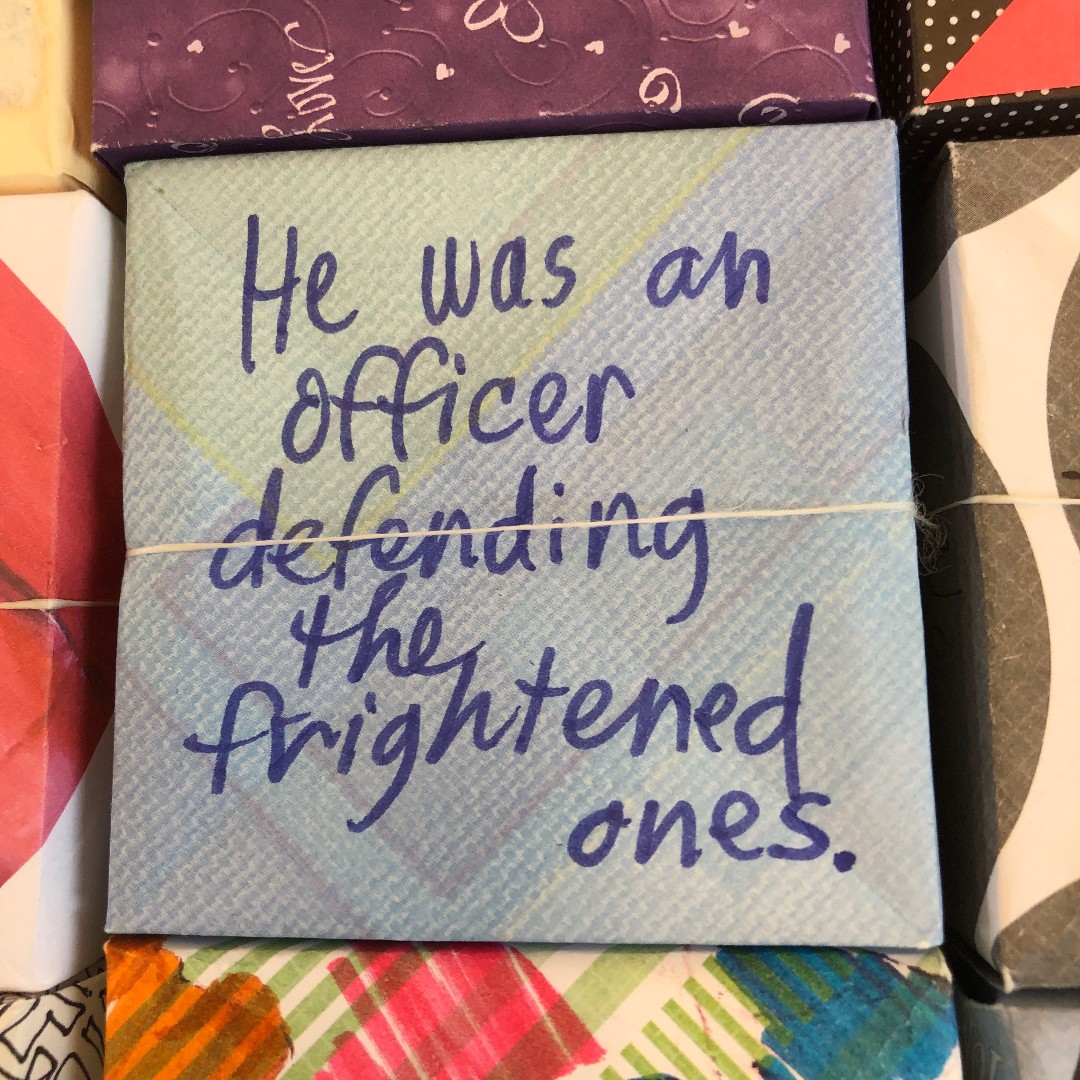 He was an
officer
defending
the
frightened
ones.